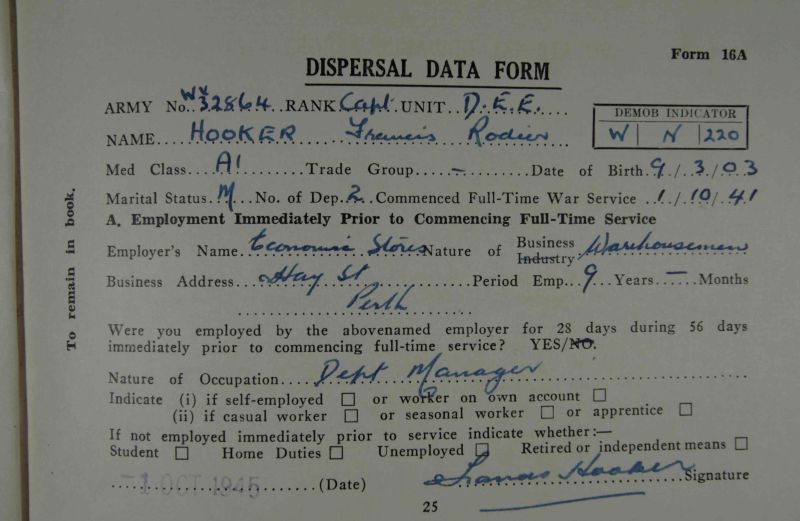 Form 16A
DISPERSAL DATA FORM
ARMY No. WX32864 RANK Capt. UNIT D.E.E.
DEMOB INDICATOR
W | N | 220
NAME HOOKER Francis Rodier
Med Class A1 Trade Group - Date of Birth 9/3/03
Marital Status M No. of Dep. 2 Commenced Full-Time War Service 1/10/41
A. Employment Immediately Prior to Commencing Full-Time Service
Employer's Name Economic Stores Nature of Business Industry Warehousemen
Business Address Hay St Period Emp. 9 Years - Months
Perth
Were you employed by the abovenamed employer for 28 days during 56 days
immediately prior to commencing full-time service? YES/NO.
Nature of Occupation Dept Manager
Indicate (i) if self-employed □ or worker on own account □
(ii) if casual worker □ or seasonal worker □ or apprentice □
If not employed immediately prior to service indicate whether:—
Student □ Home Duties □ Unemployed □ Retired or independent means □
-1 OCT 1945 (Date) Francis Hooker Signature
25
To remain in book.